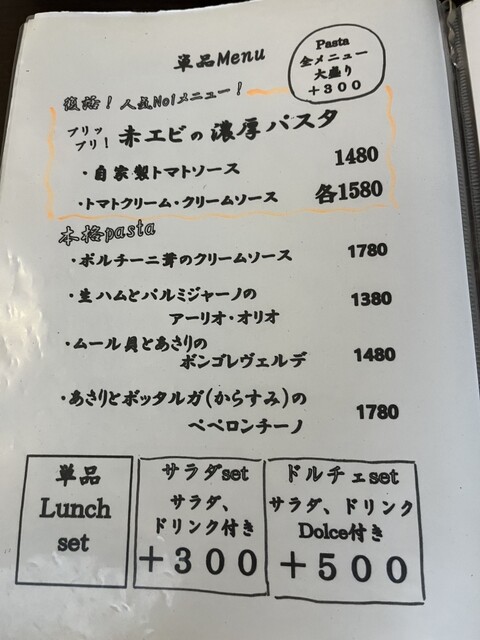 単品Menu
Pasta
全メニュー
大盛り
＋３００
復活！人気No1メニュー！
プリップリ！赤エビの濃厚パスタ
・自家製トマトソース 1480
・トマトクリーム・クリームソース 各1580
本格pasta
・ポルチーニ茸のクリームソース 1780
・生ハムとパルミジャーノの
アーリオ・オリオ 1380
・ムール貝とあさりの
ボンゴレヴェルデ 1480
・あさりとボッタルガ(からすみ)の
ペペロンチーノ 1780
単品
Lunch
set
サラダset
サラダ、
ドリンク付き
＋３００
ドルチェset
サラダ、ドリンク
Dolce付き
＋５００